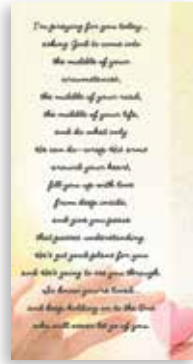 I'm praying for you today...
asking God to come into
the middle of your
circumstances,
the middle of your need,
the middle of your life,
and do what only
He can do—wrap His arms
around your heart,
fill you up with love
from deep inside,
and give you peace
that passes understanding.
He's got good plans for you
and He's going to see you through.
So know you're loved...
and keep holding on to the One
who will never let go of you.